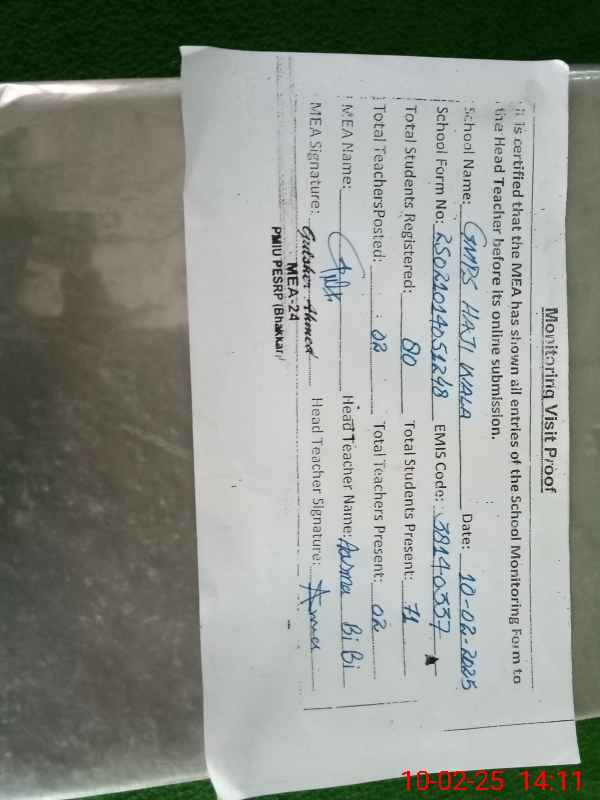 Monitoring Visit Proof
It is certified that the MEA has shown all entries of the School Monitoring Form to
the Head Teacher before its online submission.
School Name: GMPS HAJI WALA Date: 10-02-2025
School Form No: 25021014051248 EMIS Code: 38140337
Total Students Registered: 80 Total Students Present: 71
Total TeachersPosted: 02 Total Teachers Present: 02
MEA Name: Head Teacher Name: Asma Bi Bi
MEA Signature: Gulsher Ahmed Head Teacher Signature: Asma
MEA-24
PMIU PESRP (Bhakkar)
10-02-25 14:11